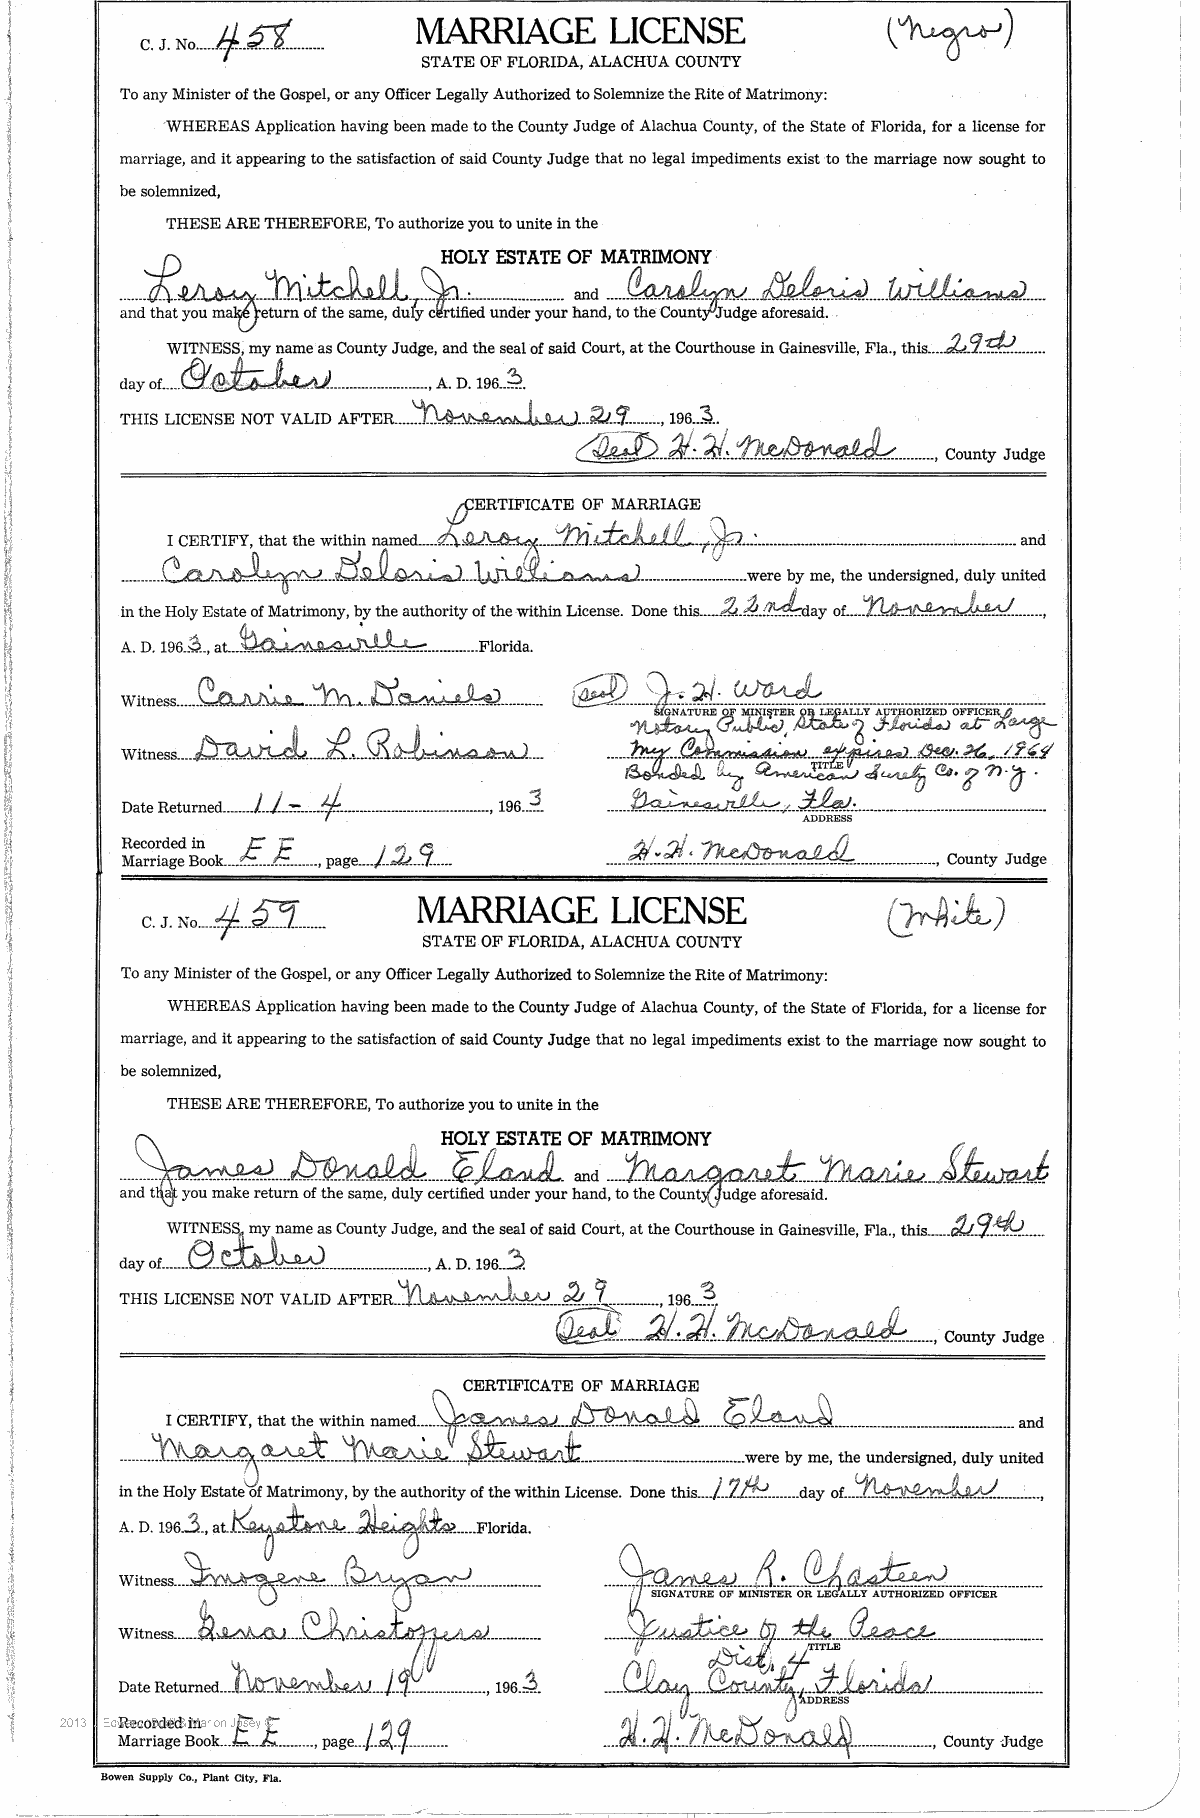 C. J. No. 458 MARRIAGE LICENSE (Negro)
STATE OF FLORIDA, ALACHUA COUNTY
To any Minister of the Gospel, or any Officer Legally Authorized to Solemnize the Rite of Matrimony:
WHEREAS Application having been made to the County Judge of Alachua County, of the State of Florida, for a license for
marriage, and it appearing to the satisfaction of said County Judge that no legal impediments exist to the marriage now sought to
be solemnized,
THESE ARE THEREFORE, To authorize you to unite in the
HOLY ESTATE OF MATRIMONY
Leroy Mitchell, Jr. and Carolyn Deloris Williams
and that you make return of the same, duly certified under your hand, to the County Judge aforesaid.
WITNESS, my name as County Judge, and the seal of said Court, at the Courthouse in Gainesville, Fla., this 29th
day of October, A. D. 1963.
THIS LICENSE NOT VALID AFTER November 29, 1963.
(Seal) H. H. McDonald, County Judge
CERTIFICATE OF MARRIAGE
I CERTIFY, that the within named Leroy Mitchell, Jr. and
Carolyn Deloris Williams were by me, the undersigned, duly united
in the Holy Estate of Matrimony, by the authority of the within License. Done this 22nd day of November,
A. D. 1963, at Gainesville Florida.
Witness Carrie M. Daniels (Seal) J. H. Ward
SIGNATURE OF MINISTER OR LEGALLY AUTHORIZED OFFICER
Notary Public, State of Florida at Large
Witness David L. Robinson My Commission expires Dec. 26, 1964
TITLE
Bonded by American Surety Co. of N.Y.
Date Returned 11-4, 1963 Gainesville, Fla.
ADDRESS
Recorded in
Marriage Book EE, page 129 H. H. McDonald, County Judge
C. J. No. 459 MARRIAGE LICENSE (White)
STATE OF FLORIDA, ALACHUA COUNTY
To any Minister of the Gospel, or any Officer Legally Authorized to Solemnize the Rite of Matrimony:
WHEREAS Application having been made to the County Judge of Alachua County, of the State of Florida, for a license for
marriage, and it appearing to the satisfaction of said County Judge that no legal impediments exist to the marriage now sought to
be solemnized,
THESE ARE THEREFORE, To authorize you to unite in the
HOLY ESTATE OF MATRIMONY
James Donald Eland and Margaret Marie Stewart
and that you make return of the same, duly certified under your hand, to the County Judge aforesaid.
WITNESS, my name as County Judge, and the seal of said Court, at the Courthouse in Gainesville, Fla., this 29th
day of October, A. D. 1963
THIS LICENSE NOT VALID AFTER November 29, 1963
(Seal) H. H. McDonald, County Judge
CERTIFICATE OF MARRIAGE
I CERTIFY, that the within named James Donald Eland and
Margaret Marie Stewart were by me, the undersigned, duly united
in the Holy Estate of Matrimony, by the authority of the within License. Done this 17th day of November,
A. D. 1963, at Keystone Heights Florida.
Witness Imogene Bryan James R. Chasteen
SIGNATURE OF MINISTER OR LEGALLY AUTHORIZED OFFICER
Witness Christoffers Justice of the Peace
TITLE
Dist. 4
Date Returned November 19, 1963 Clay County, Florida
ADDRESS
2013
Recorded in
Marriage Book EE, page 129 H. H. McDonald, County Judge
Bowen Supply Co., Plant City, Fla.